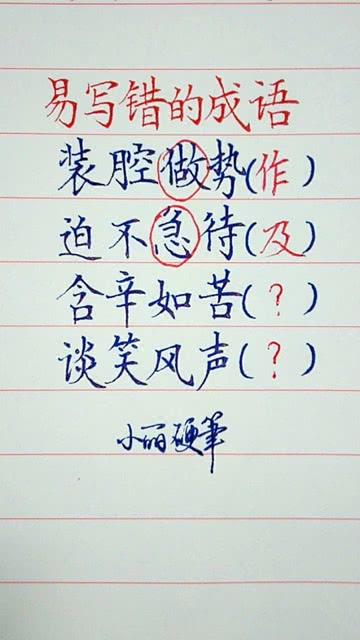 易写错的成语
装腔做势(作)
迫不急待(及)
含辛如苦(?)
谈笑风声(?)
小丽硬筆